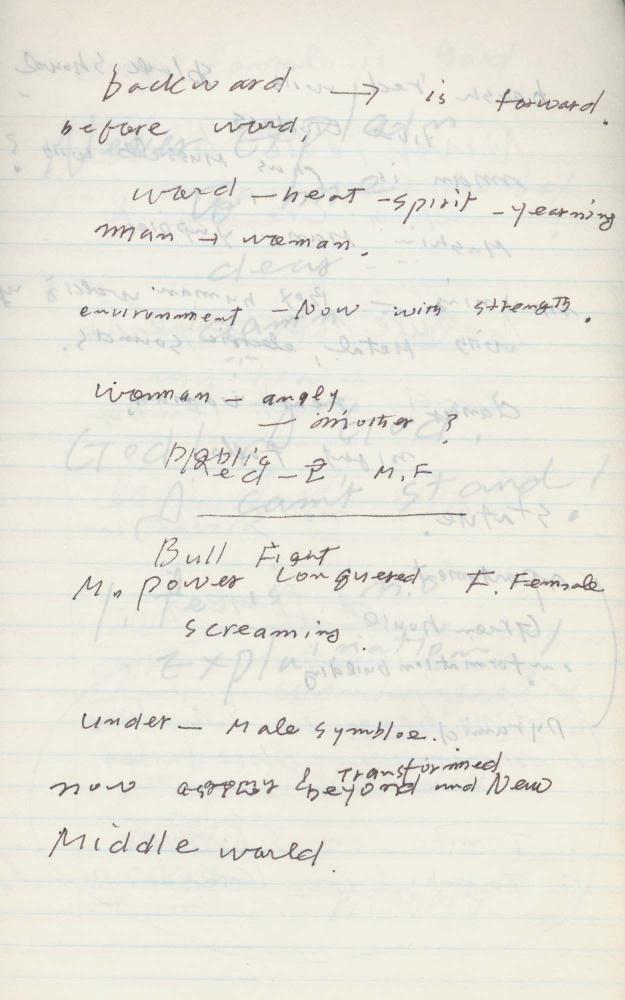 backward → is forward.
before word,
word – heat – spirit – yearning
man → woman.
environment – Now with strength.
Womman – angly
– mother ?
M.F
Bull Fight
M. power conquered F. Female
Screaming.
Under – Male symbloe.
Transformed
now beyond and New
Middle world.